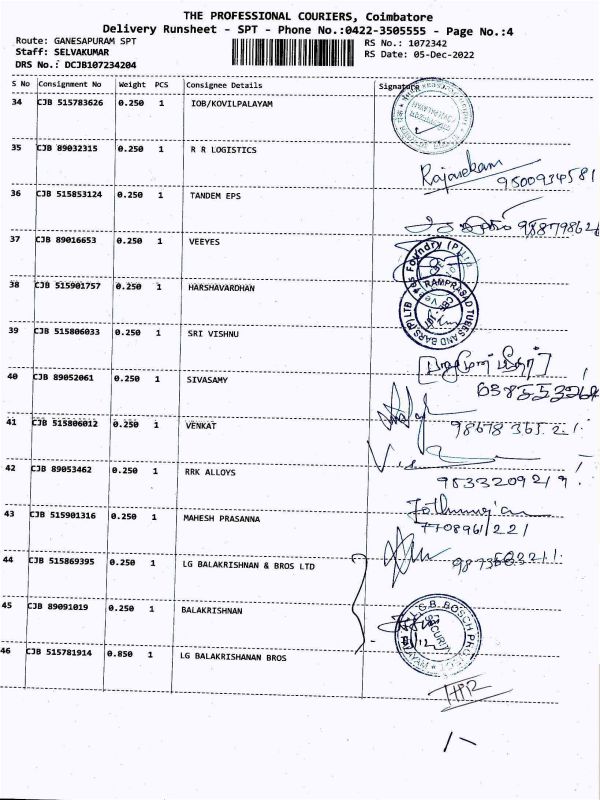 THE PROFESSIONAL COURIERS, Coimbatore
Delivery Runsheet - SPT - Phone No.:0422-3505555 - Page No.:4
Route: GANESAPURAM SPT
RS No.: 1072342
Staff: SELVAKUMAR
RS Date: 05-Dec-2022
DRS No.: DCJB107234204
S No Consignment No Weight PCS Consignee Details Signature
34 CJB 515783626 0.250 1 IOB/KOVILPALAYAM
35 CJB 89032315 0.250 1 R R LOGISTICS
9500934581
36 CJB 515853124 0.250 1 TANDEM EPS
37 CJB 89016653 0.250 1 VEEYES
Foundry (P)
38 CJB 515901757 0.250 1 HARSHAVARDHAN
RAMPRASAD TUBES AND BARS (P) LTD
39 CJB 515806033 0.250 1 SRI VISHNU
40 CJB 89052061 0.250 1 SIVASAMY
41 CJB 515806012 0.250 1 VENKAT
42 CJB 89053462 0.250 1 RRK ALLOYS
43 CJB 515901316 0.250 1 MAHESH PRASANNA
7708961221
44 CJB 515869395 0.250 1 LG BALAKRISHNAN & BROS LTD
45 CJB 89091019 0.250 1 BALAKRISHNAN
SECURITY
46 CJB 515781914 0.850 1 LG BALAKRISHANAN BROS